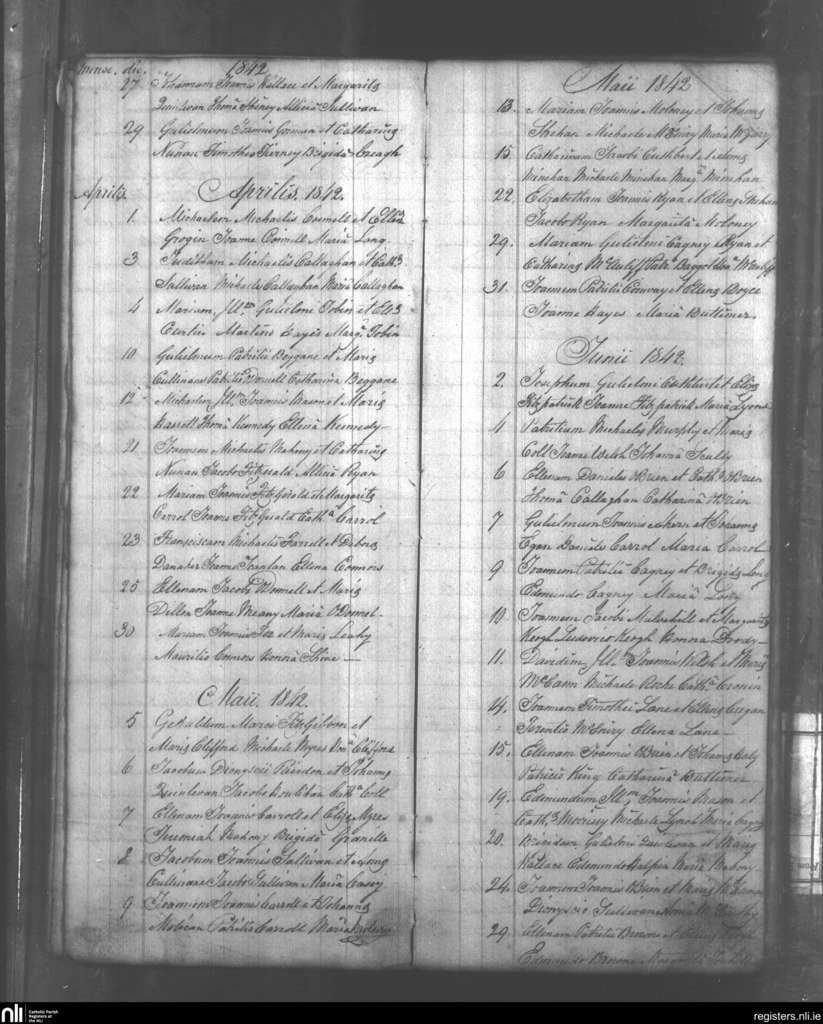 mense. die. 1842
27 Johannam Joannis Wallace et Margaritæ
Quinlivan Thomâ Hiney Alliciâ Sullivan
29 Gulielmum Joannis Gorman et Catharinæ
Nunan Timotheo Kierney Brigidâ Creagh
Aprilis. Aprilis. 1842.
1. Michaelem Michaelis Connell et Ellenæ
Grogin Joanne Connell Mariâ Long
3 Juditham Michaelis Callaghan et Cathæ
Sullivan Michaele Callaghan Mariâ Callaghan
4 Mariam Gulielmi Tobin et Elis
Curtin Martino Hayes Marg. Tobin
10 Gulielmum Patritii Beggane et Mariæ
Cullinane Patritio Donnell Catharina Beggane
12 Michaelem Illm Joannis Mason et Mariæ
Barrett Thomâ Kennedy Ellenâ Kennedy
21 Joannem Michaelis Mahony et Catharinæ
Nunan Jacobo FitzGerald Alliciâ Ryan
22 Mariam Joannis FitzGerald et Margaritæ
Carrol Joanne FitzGerald Catha Carrol
23 Franciscam Michaelis Farrell et Deboræ
Danaher Joanne Scanlan Ellena Connors
25 Ellenam Jacobi ODonnell et Mariæ
Dillon Joanne Meany Mariâ ODonnel
30 Mariam Joannis Fox et Mariæ Leahy
Mauritio Connors Honorâ Shine
Maii. 1842.
5 Geraldum Marci FitzGibbon et
Mariæ Clifford Michaele Myres Clifford
6 Jacobum Dionysii Riordon et Johannæ
Quinlivan Jacobo Houlihan Catha Coll
7 Ellenam Joannis Carroll et Elis Myres
Jeremiah Mahony Brigidâ Granelle
8 Jacobum Joannis Sullivan et
Cullinane Jacobo Sullivan Mariâ Casey
9 Joannem Joannis Carroll et Johannæ
Patritio Carroll Maria
Maii 1842
13. Mariam Joannis Moloney et Johannæ
Shehan Michaele McEniry Maria McEniry
15 Catharinam Jacobi Cuthbert et
Minehan Michaele Minehan Marga Minehan
22. Elizabetham Joannis Ryan et Ellenæ Shehan
Jacobo Ryan Margarita Moloney
29. Mariam Gulielmi Cagney Ryan et
Catharinæ McAuliff Patr. Baggot
31. Joannem Patritii Conway et Ellenæ Boyce
Joanne Hayes Mariâ Buttimer
Junii 1842.
2. Josephum Gulielmi Cuthbert et Ellenæ
Fitzpatrick Joanne Fitzpatrick Mariâ Lyons
4 Patritium Michaelis Murphy et Mariæ
Coll Joanne Welsh Johanna Scully
6 Ellenam Danielis OBrien et Cath OBrien
Thomâ Callaghan Catharinâ OBrien
7 Gulielmum Joannis Ahern et Johannæ
Egan Daniele Carrol Maria Carrol
9 Joannem Patritii Cagney et Brigidæ Long
Edmundo Cagney Mariâ Long
10. Joannem Jacobi Mulcahill et Margaritæ
Keogh Ludovico Keogh Honora
11. Davidem Illm Joannis Welsh et Mariæ
McCann Michaele Roche Catha Cronin
14. Joannem Timothei Lane et Ellenæ Creagan
Terentio McEniry Ellena Lane
15. Ellenam Joannis OBrien et Johannæ Daly
Patricio King Catharinâ Buttimer
19. Edmundum Illm Joannis Mason et
Cathæ Morrisey Michaele Lynch Mariâ Cagney
20. Brigidam Gulielmi Quinlivan et Mariæ
Wallace Edmundo Halpin Mariâ Mahony
24. Joannem Joannis OBrien et Mariæ
Dionysio Sulivan
29. Ellenam Patritii Browne et
Edmundo Browne
nli
Catholic Parish
Registers at
the NLI
registers.nli.ie